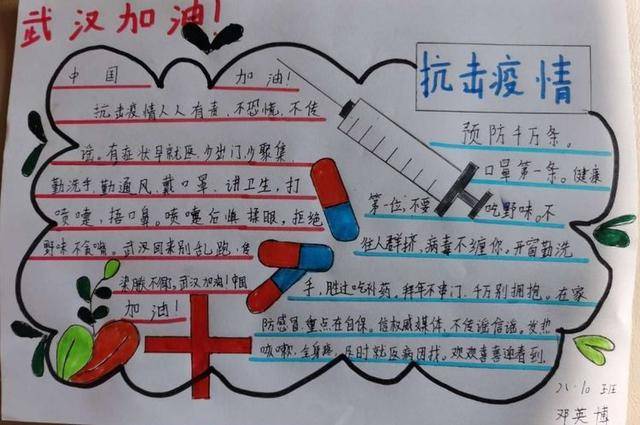 武汉加油!
抗击疫情
中国 加油!
抗击疫情人人有责,不恐慌,不传
谣。有症状早就医,少出门,少聚集
勤洗手,勤通风,戴口罩,讲卫生,打
喷嚏,捂口鼻。喷嚏后慎揉眼,拒绝
野味不食嘴。武汉回来别乱跑,
不闹。武汉加油!中国
加油!
预防千万条。
口罩第一条。健康
第一位,不要吃野味。不
往人群挤,病毒不缠你,开窗勤洗
手,胜过吃补药,拜年不串门,千万别拥抱。在家
防感冒,重点在自保。信权威媒体,不传谣信谣,发热
咳嗽,全身疼,及时就医病因找。欢欢喜喜迎春到.
班
邓英博